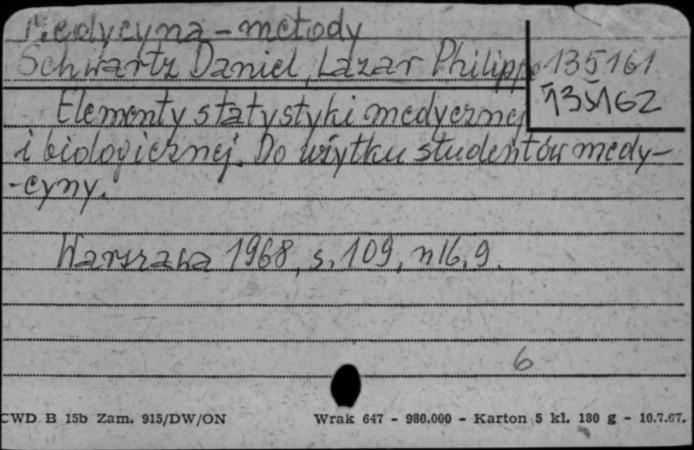 Medycyna - metody
Schwartz Daniel, Lazar Philippe
135161
135162
Elementy statystyki medycznej
i biologicznej. Do użytku studentów medy-
-cyny.
Warszawa 1968, s. 109, nlb. 9.
6
CWD B 15b Zam. 915/DW/ON
Wrak 647 - 980.000 - Karton 5 kl. 180 g - 10.7.67.